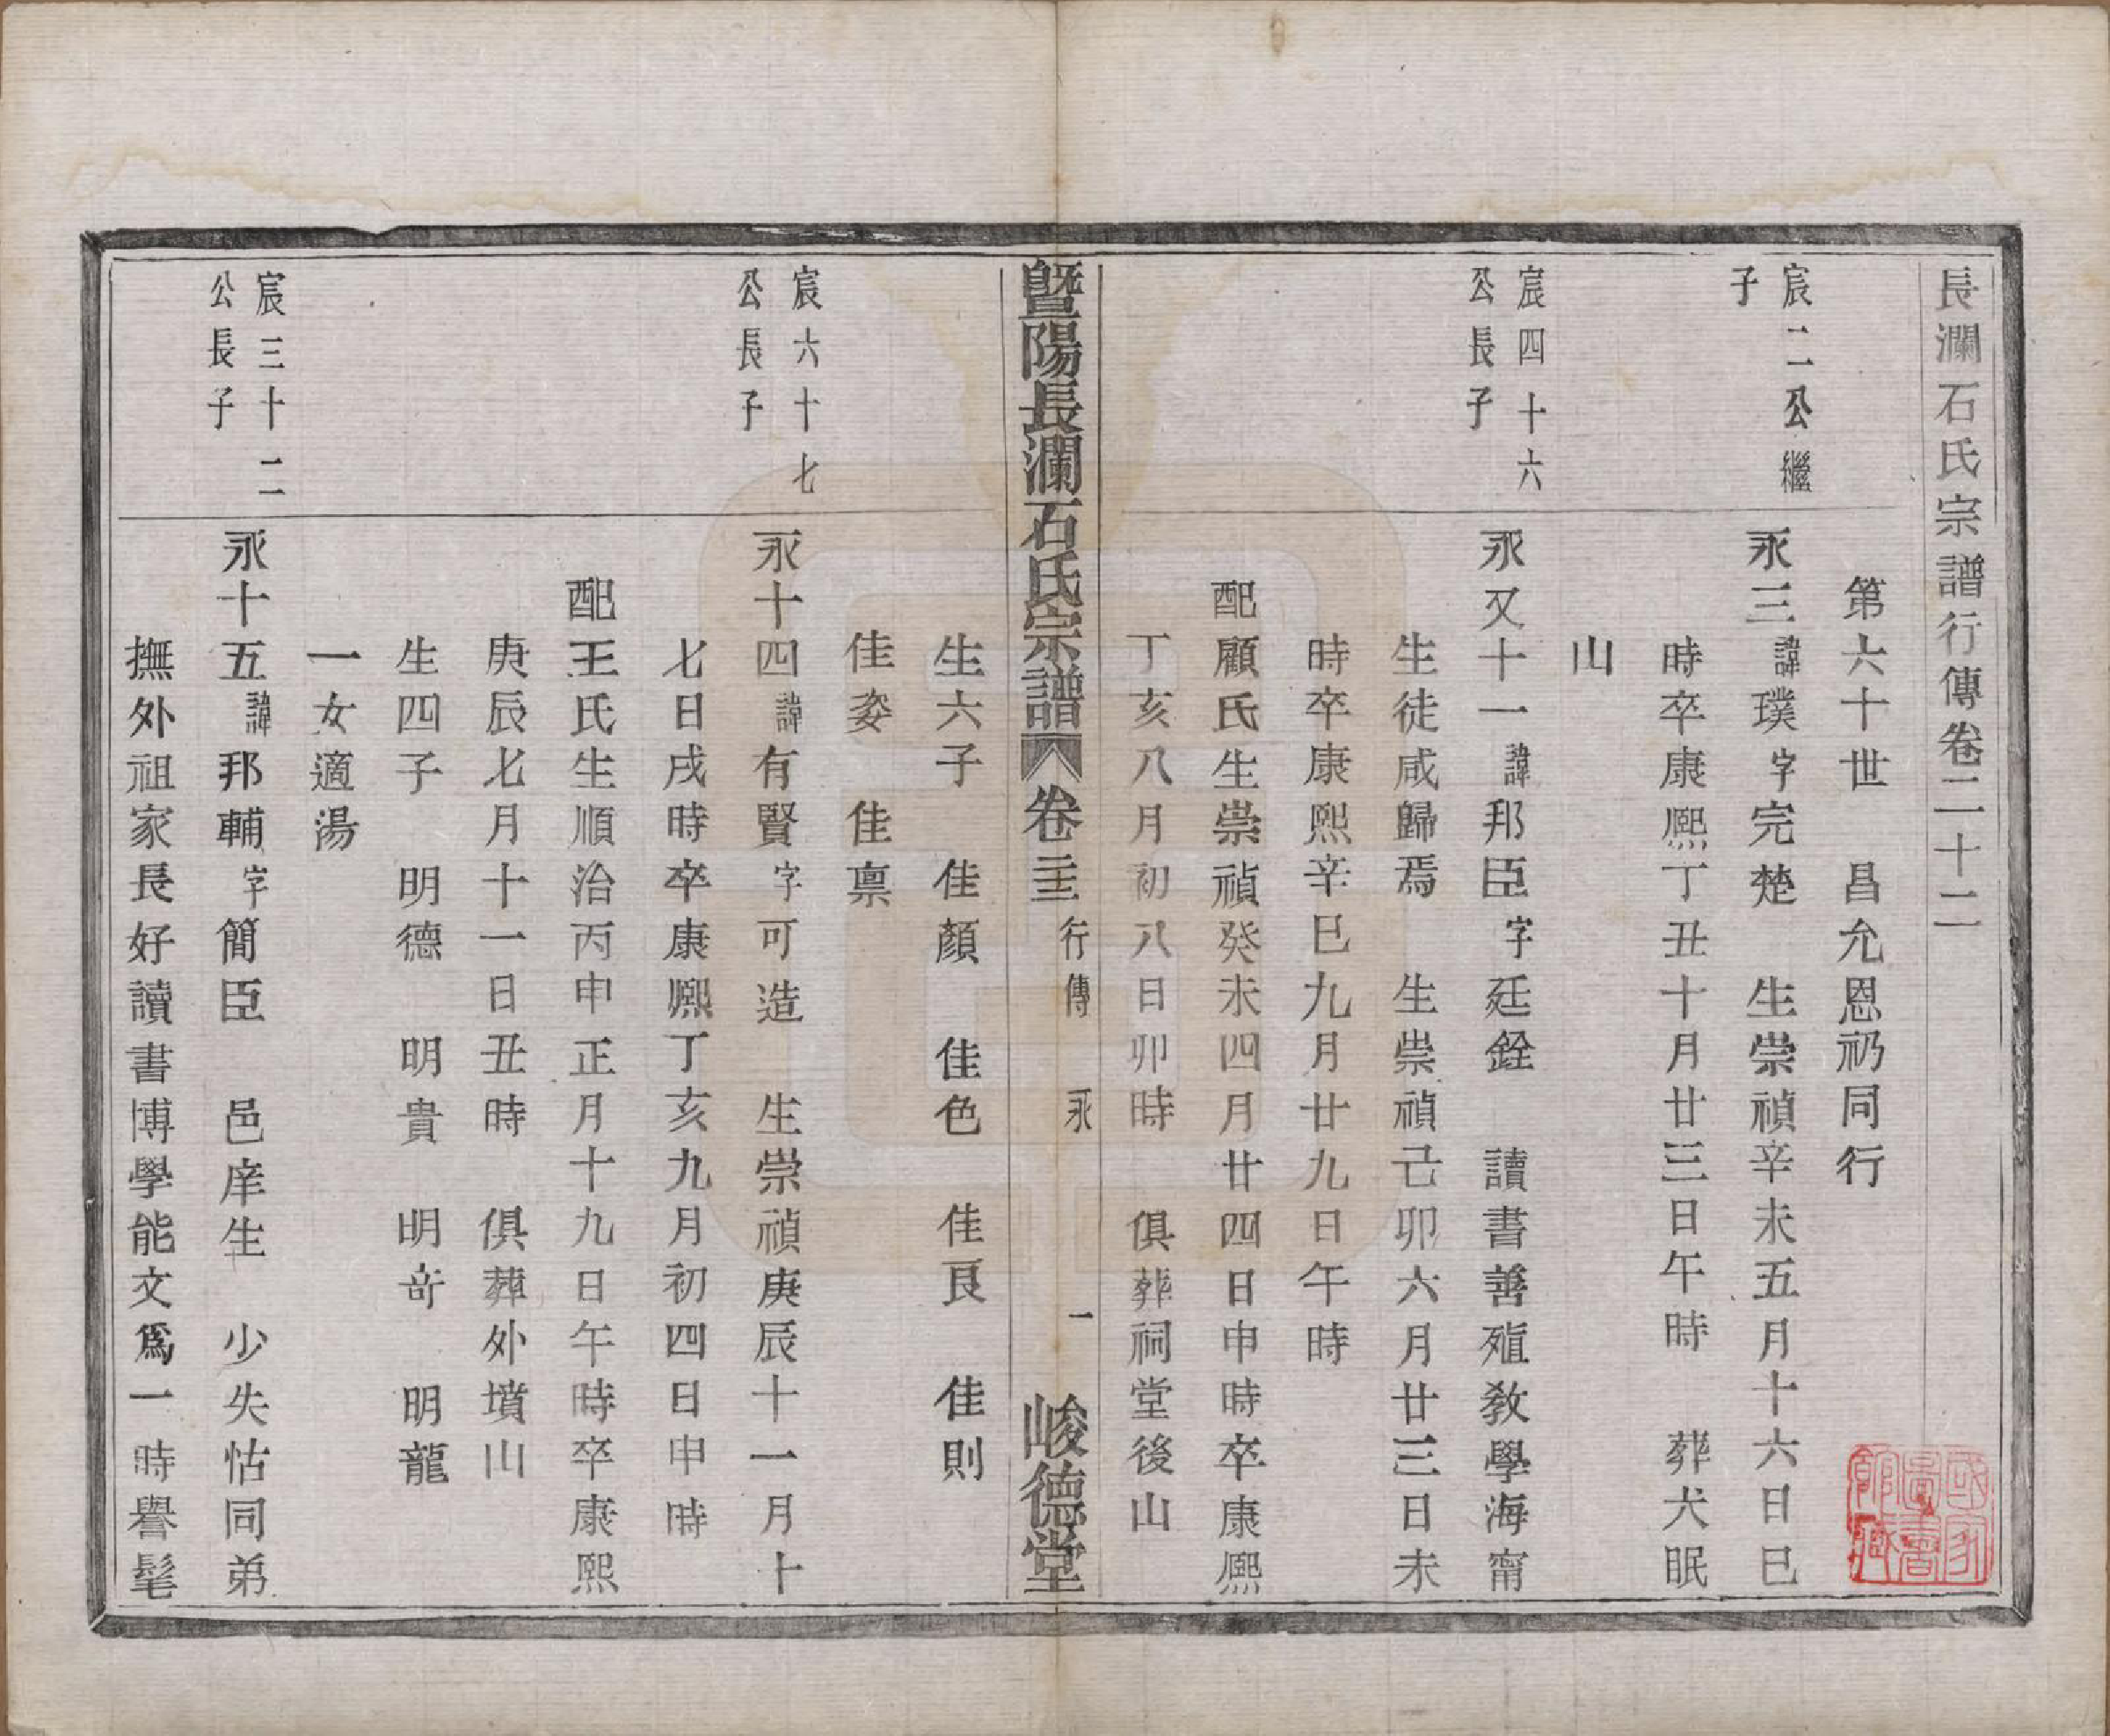 長瀾石氏宗譜行傳卷二十二
第六十世　昌允恩礽同行
宸二公繼
子
永三諱璞字完楚　生崇禎辛未五月十六日巳
時卒康熙丁丑十月廿三日午時　葬犬眠
山
宸四十六
公長子
永又十一諱邦臣字廷銓　讀書善殖敎學海甯
生徒咸歸焉　生崇禎己卯六月廿三日未
時卒康熙辛巳九月廿九日午時
配顧氏生崇禎癸未四月廿四日申時卒康熙
丁亥八月初八日卯時　俱葬祠堂後山
暨陽長瀾石氏宗譜　卷二十二　行傳　永　一　峻德堂
生六子　佳顏　佳色　佳良　佳則
佳姿　佳禀
宸六十七
公長子
永十四諱有賢字可造　生崇禎庚辰十一月十
七日戌時卒康熙丁亥九月初四日申時
配王氏生順治丙申正月十九日午時卒康熙
庚辰七月十一日丑時　俱葬外墳山
生四子　明德　明貴　明奇　明龍
一女適湯
宸三十二
公長子
永十五諱邦輔字簡臣　邑庠生　少失怙同弟
撫外祖家長好讀書博學能文爲一時譽髦
國家圖書館藏